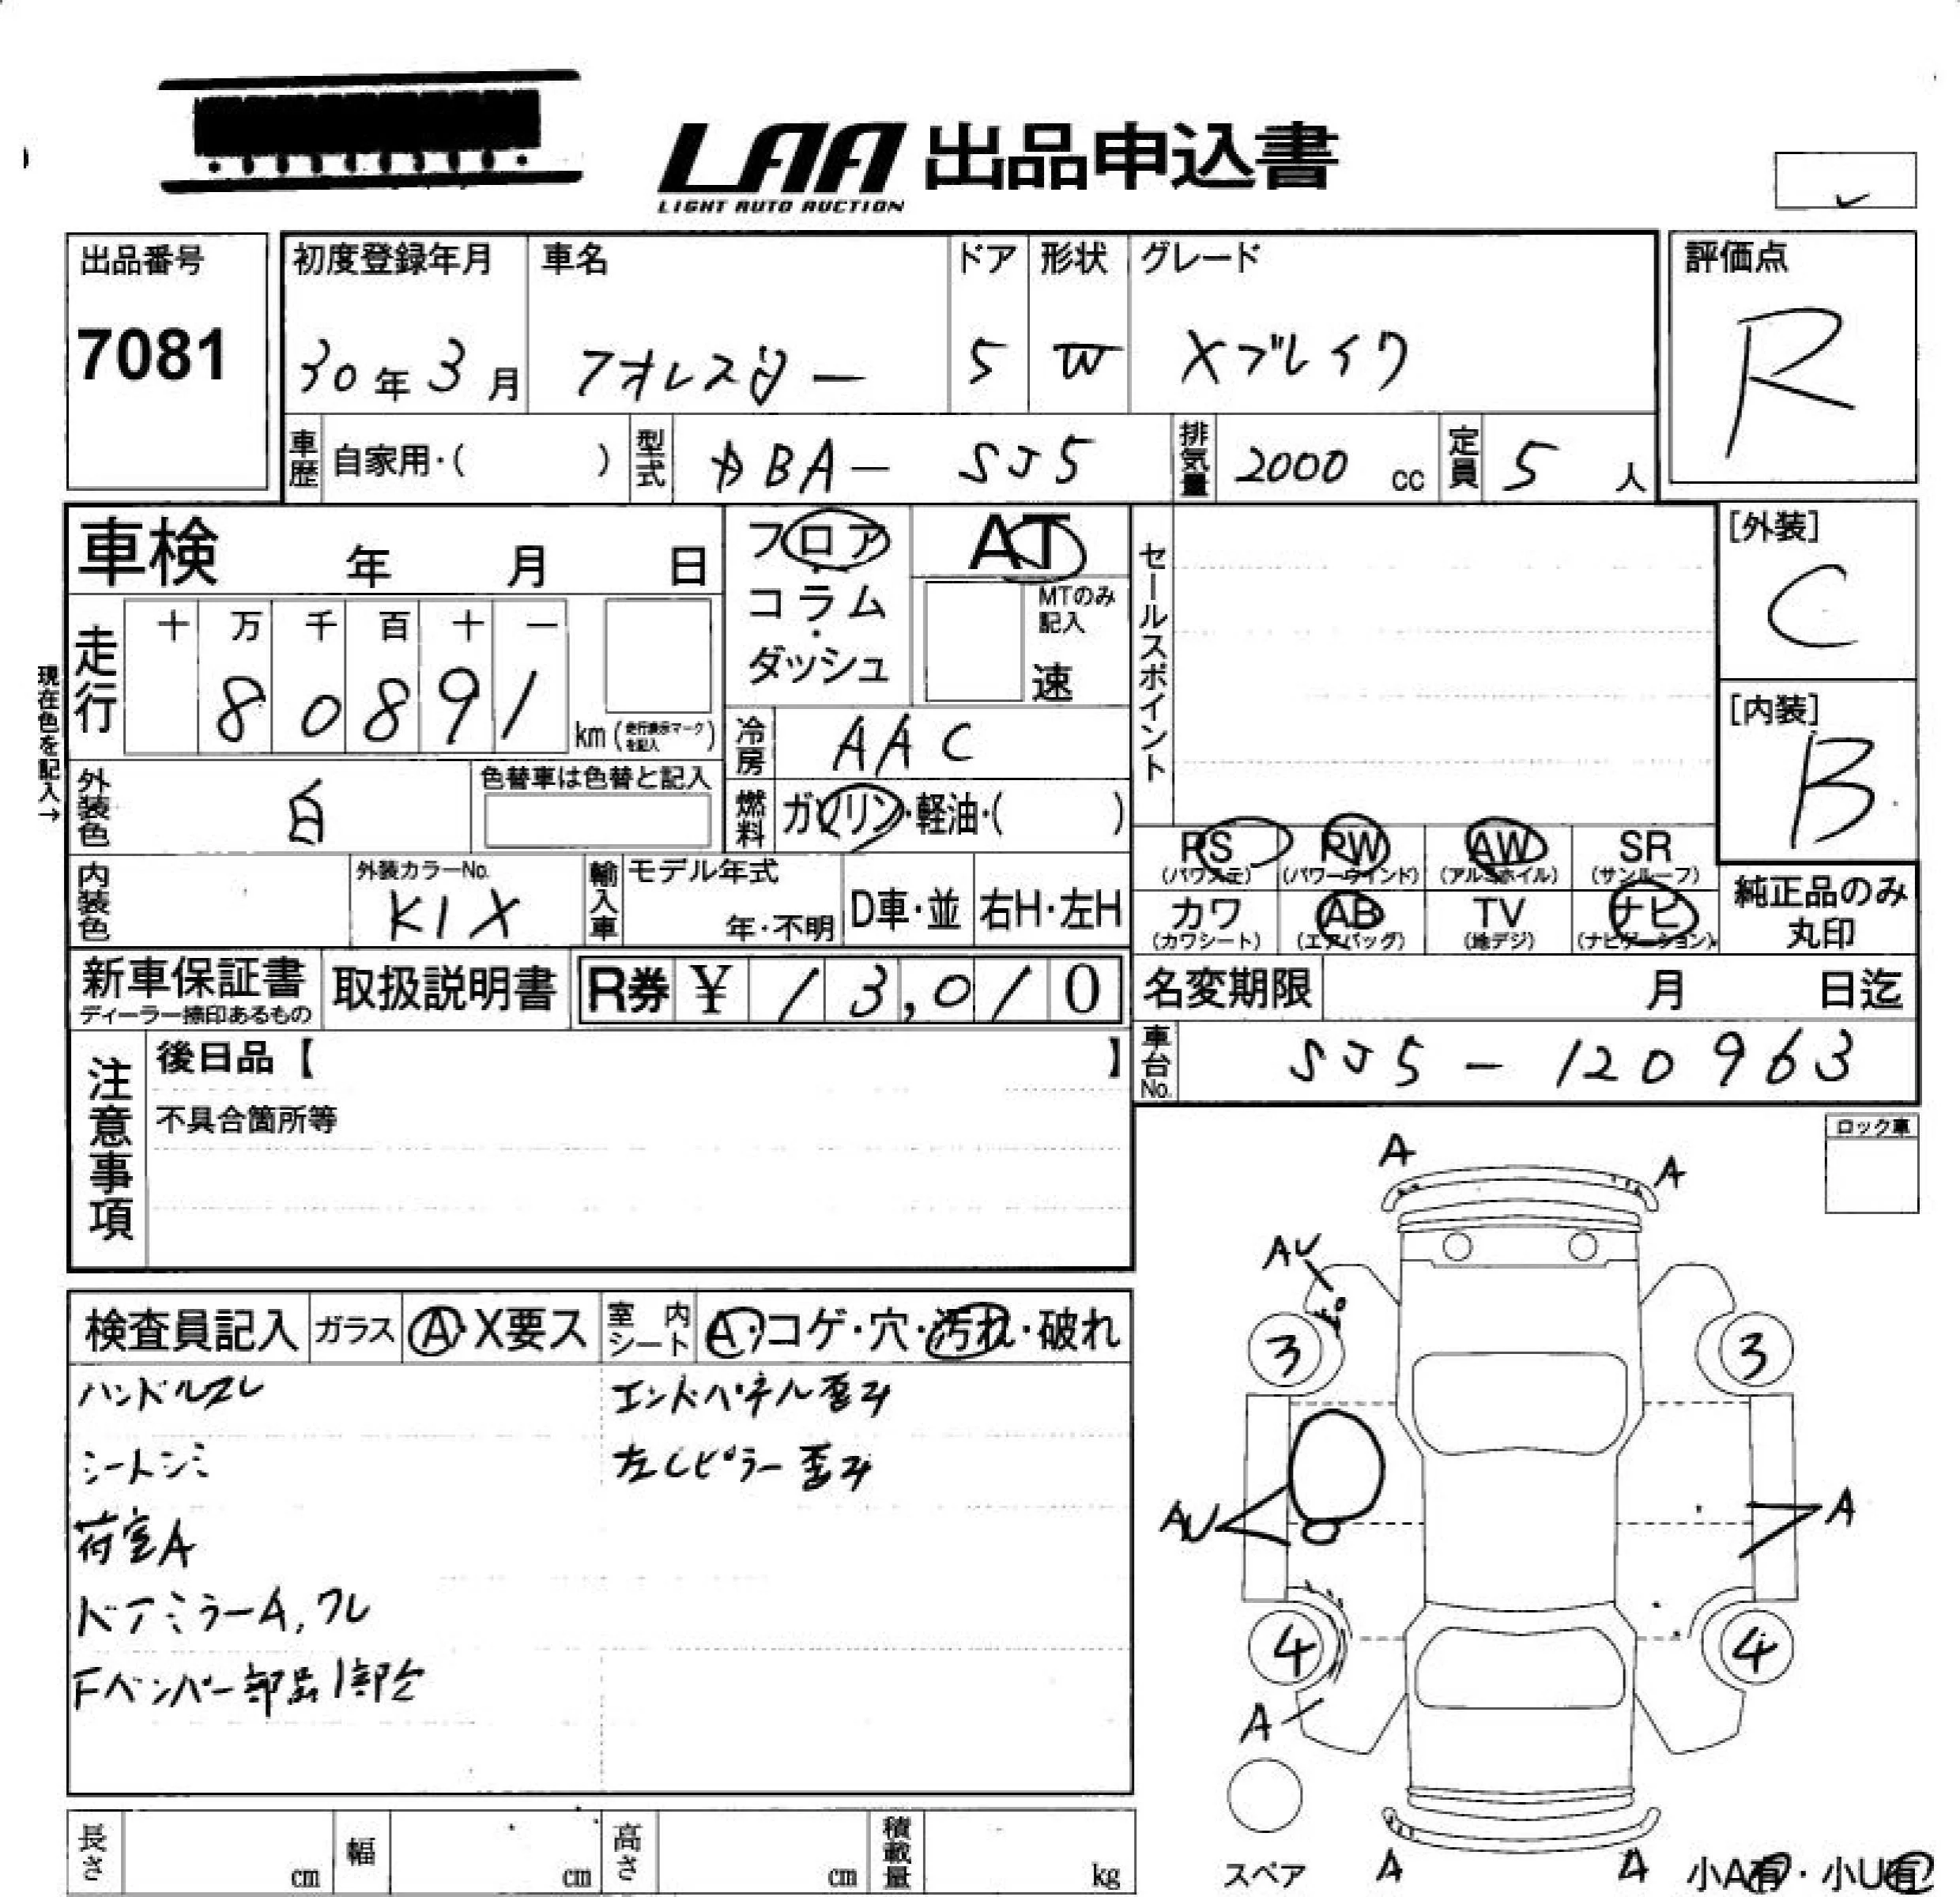 LAA 出品申込書
LIGHT AUTO AUCTION
出品番号
7081
初度登録年月
30年3月
車名
フォレスター
ドア
5
形状
W
グレード
Xブレイク
評価点
R
車歴 自家用・( )
型式 DBA- SJ5
排気量 2000 cc
定員 5 人
車検 年 月 日
フロア・コラム・ダッシュ
AT
MTのみ記入
速
セールスポイント
[外装]
C
[内装]
B
現在色を記入→
走行
十 万 千 百 十 一
8 0 8 9 1
km (走行表示マークを記入)
冷房 AAC
外装色 白
色替車は色替と記入
燃料 ガソリン・軽油・( )
内装色
外装カラーNo.
K1X
輸入車
モデル年式
年・不明
D車・並
右H・左H
PS (パワステ)
PW (パワーウインド)
AW (アルミホイル)
SR (サンルーフ)
カワ (カワシート)
AB (エアバッグ)
TV (地デジ)
ナビ (ナビゲーション)
純正品のみ
丸印
新車保証書
ディーラー捺印あるもの
取扱説明書
R券 ¥ 13,010
名変期限 月 日迄
車台No. SJ5-120963
注意事項
後日品【 】
不具合箇所等
ロック車
検査員記入
ガラス A・X要ス
室内シート A・コゲ・穴・汚れ・破れ
ハンドルスレ
シートシミ
荷室A
ドアミラーA,ワレ
Fバンパー部品1部欠
エンドパネル歪み
左Cピラー歪み
A
A
AU
3
3
AU
A
4
4
A
スペア
A
A
小A有・小U有
長さ cm
幅 cm
高さ cm
積載量 kg